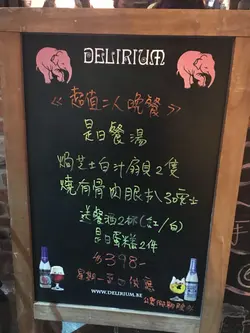 DELIRIUM
《超值二人晚餐》
是日餐湯
焗芝士白汁扇貝2隻
燒有骨肉眼扒30安士
送餐酒2杯(紅/白)
是日蛋糕2件
$398-
星期一至四供應
WWW.DELIRIUM.BE